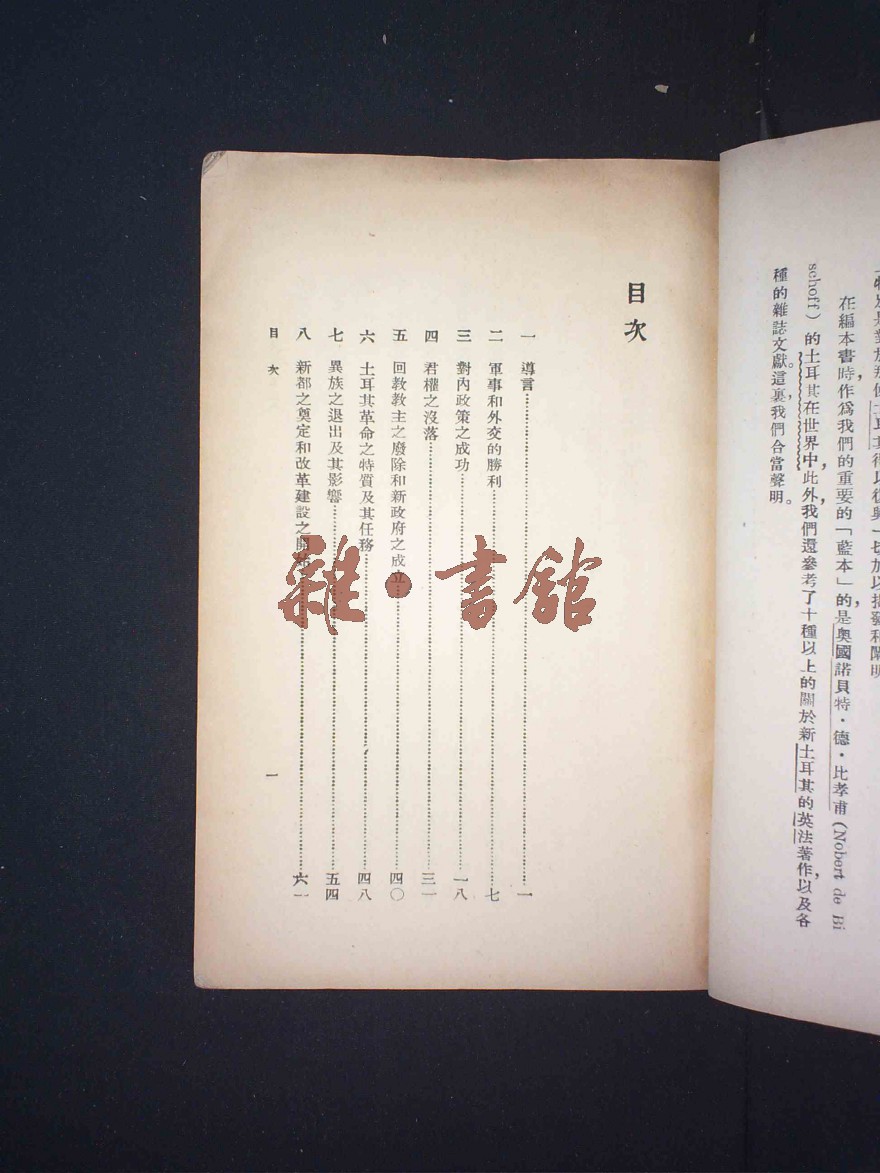 特別是對於那使土耳其得以復興一切加以揭發和闡明
在編本書時,作為我們的重要的「藍本」的,是奧國諾貝特·德·比孝甫(Nobert de Bi
schoff)的土耳其在世界中,此外,我們還參考了十種以上的關於新土耳其的英法著作,以及各
種的雜誌文獻。這裏,我們合當聲明。
目次
一 導言……一
二 軍事和外交的勝利……七
三 對內政策之成功……一八
四 君權之沒落……三一
五 回教教主之廢除和新政府之成立……四〇
六 土耳其革命之特質及其任務……四八
七 異族之退出及其影響……五四
八 新都之奠定和改革建設之開始……六一
目次
一
雜·書館